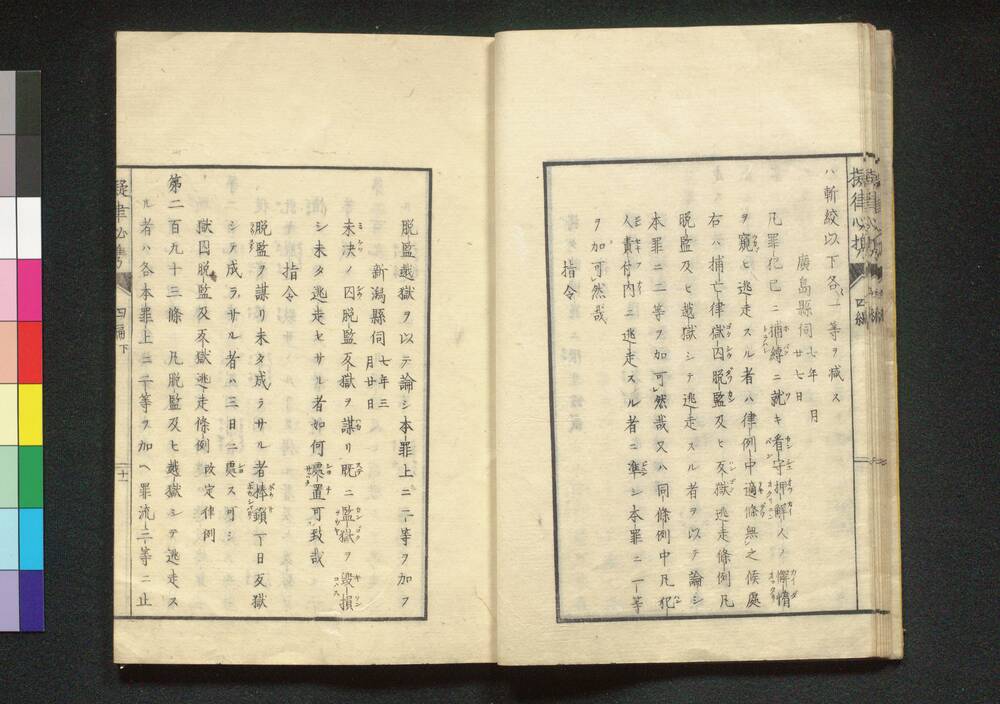 ハ斬絞以下各一等ヲ減ス
廣島縣伺 七年 月廿七日
凡罪犯已ニ捕縛ニ就キ看守押解人ノ懈惰
ヲ窺ヒ逃走スル者ハ律例中適條無之候處
右ハ捕亡律獄囚脱監及ヒ反獄逃走條例凡
脱監及ヒ越獄シテ逃走スル者ヲ以テ論シ
本罪ニ二等ヲ加可然哉又ハ同條例中凡犯
人責付内ニ逃走スル者ニ準シ本罪ニ一等
ヲ加可然哉
指令
脱監越獄ヲ以テ論シ本罪上ニ二等ヲ加フ
新潟縣伺 七年三月廿日
未決ノ囚脱監反獄ヲ謀リ既ニ監獄ヲ毀損
シ未タ逃走セサル者如何處置可致哉
指令
脱監ヲ謀リ未タ成ラサル者棒鎖一日反獄
ニシテ成ラサル者ハ三日ニ處ス可シ
獄囚脱監及反獄逃走條例 改定律例
第二百九十三條 凡脱監及ヒ越獄シテ逃走ス
ル者ハ各本罪上ニ二等ヲ加ヘ罪流三等ニ止
四編下